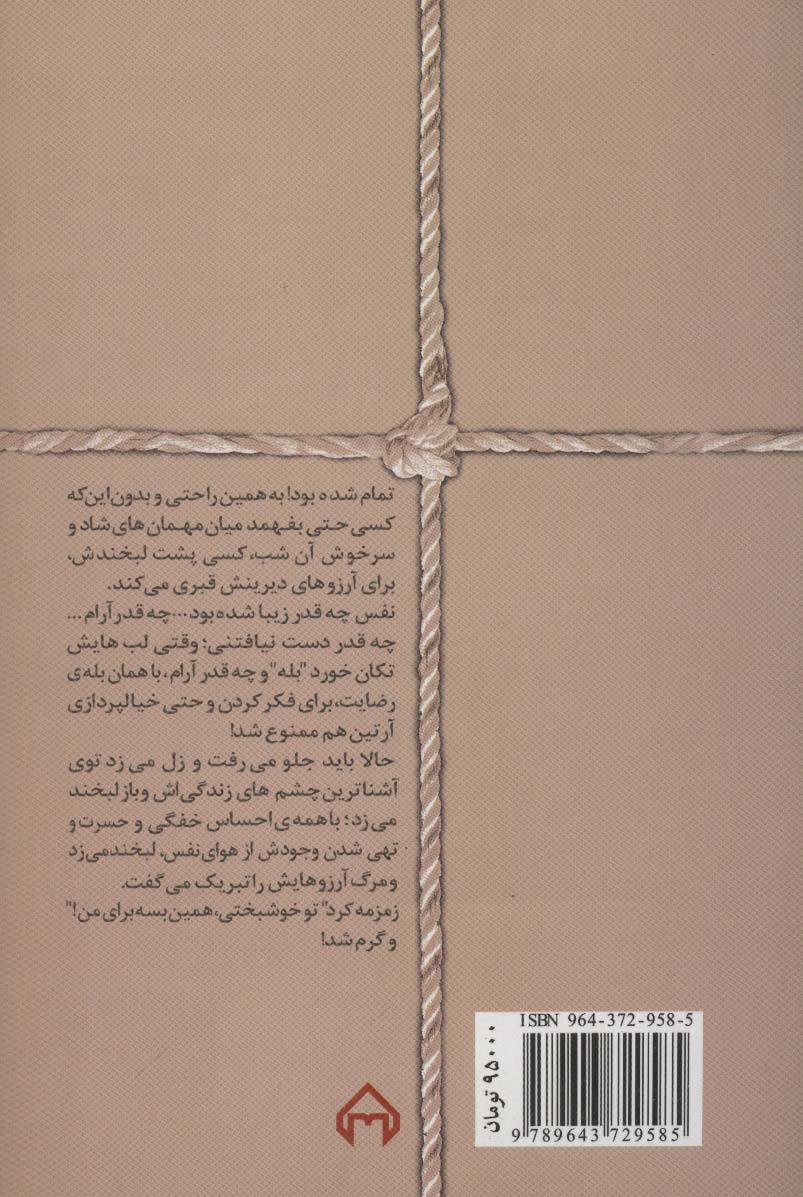 تمام شده بود! به همین راحتی و بدون این‌که
کسی حتی بفهمد میان مهمان‌های شاد و
سرخوش آن شب، کسی پشت لبخندش،
برای آرزوهای دیرینش قبری می‌کند.
نفس چه قدر زیبا شده بود... چه قدر آرام ...
چه قدر دست نیافتنی؛ وقتی لب هایش
تکان خورد "بله" و چه قدر آرام، با همان بله‌ی
رضایت، برای فکر کردن و حتی خیالپردازی
آرتین هم ممنوع شد!
حالا باید جلو می رفت و زل می زد توی
آشناترین چشم های زندگی‌اش و باز لبخند
می‌زد؛ با همه‌ی احساس خفگی و حسرت و
تهی شدن وجودش از هوای نفس، لبخند می‌زد
و مرگ آرزوهایش را تبریک می‌گفت.
زمزمه کرد "تو خوشبختی، همین بسه برای من!"
و گرم شد!
ISBN 964-372-958-5
۹۵۰۰۰ تومان
9 789643 729585